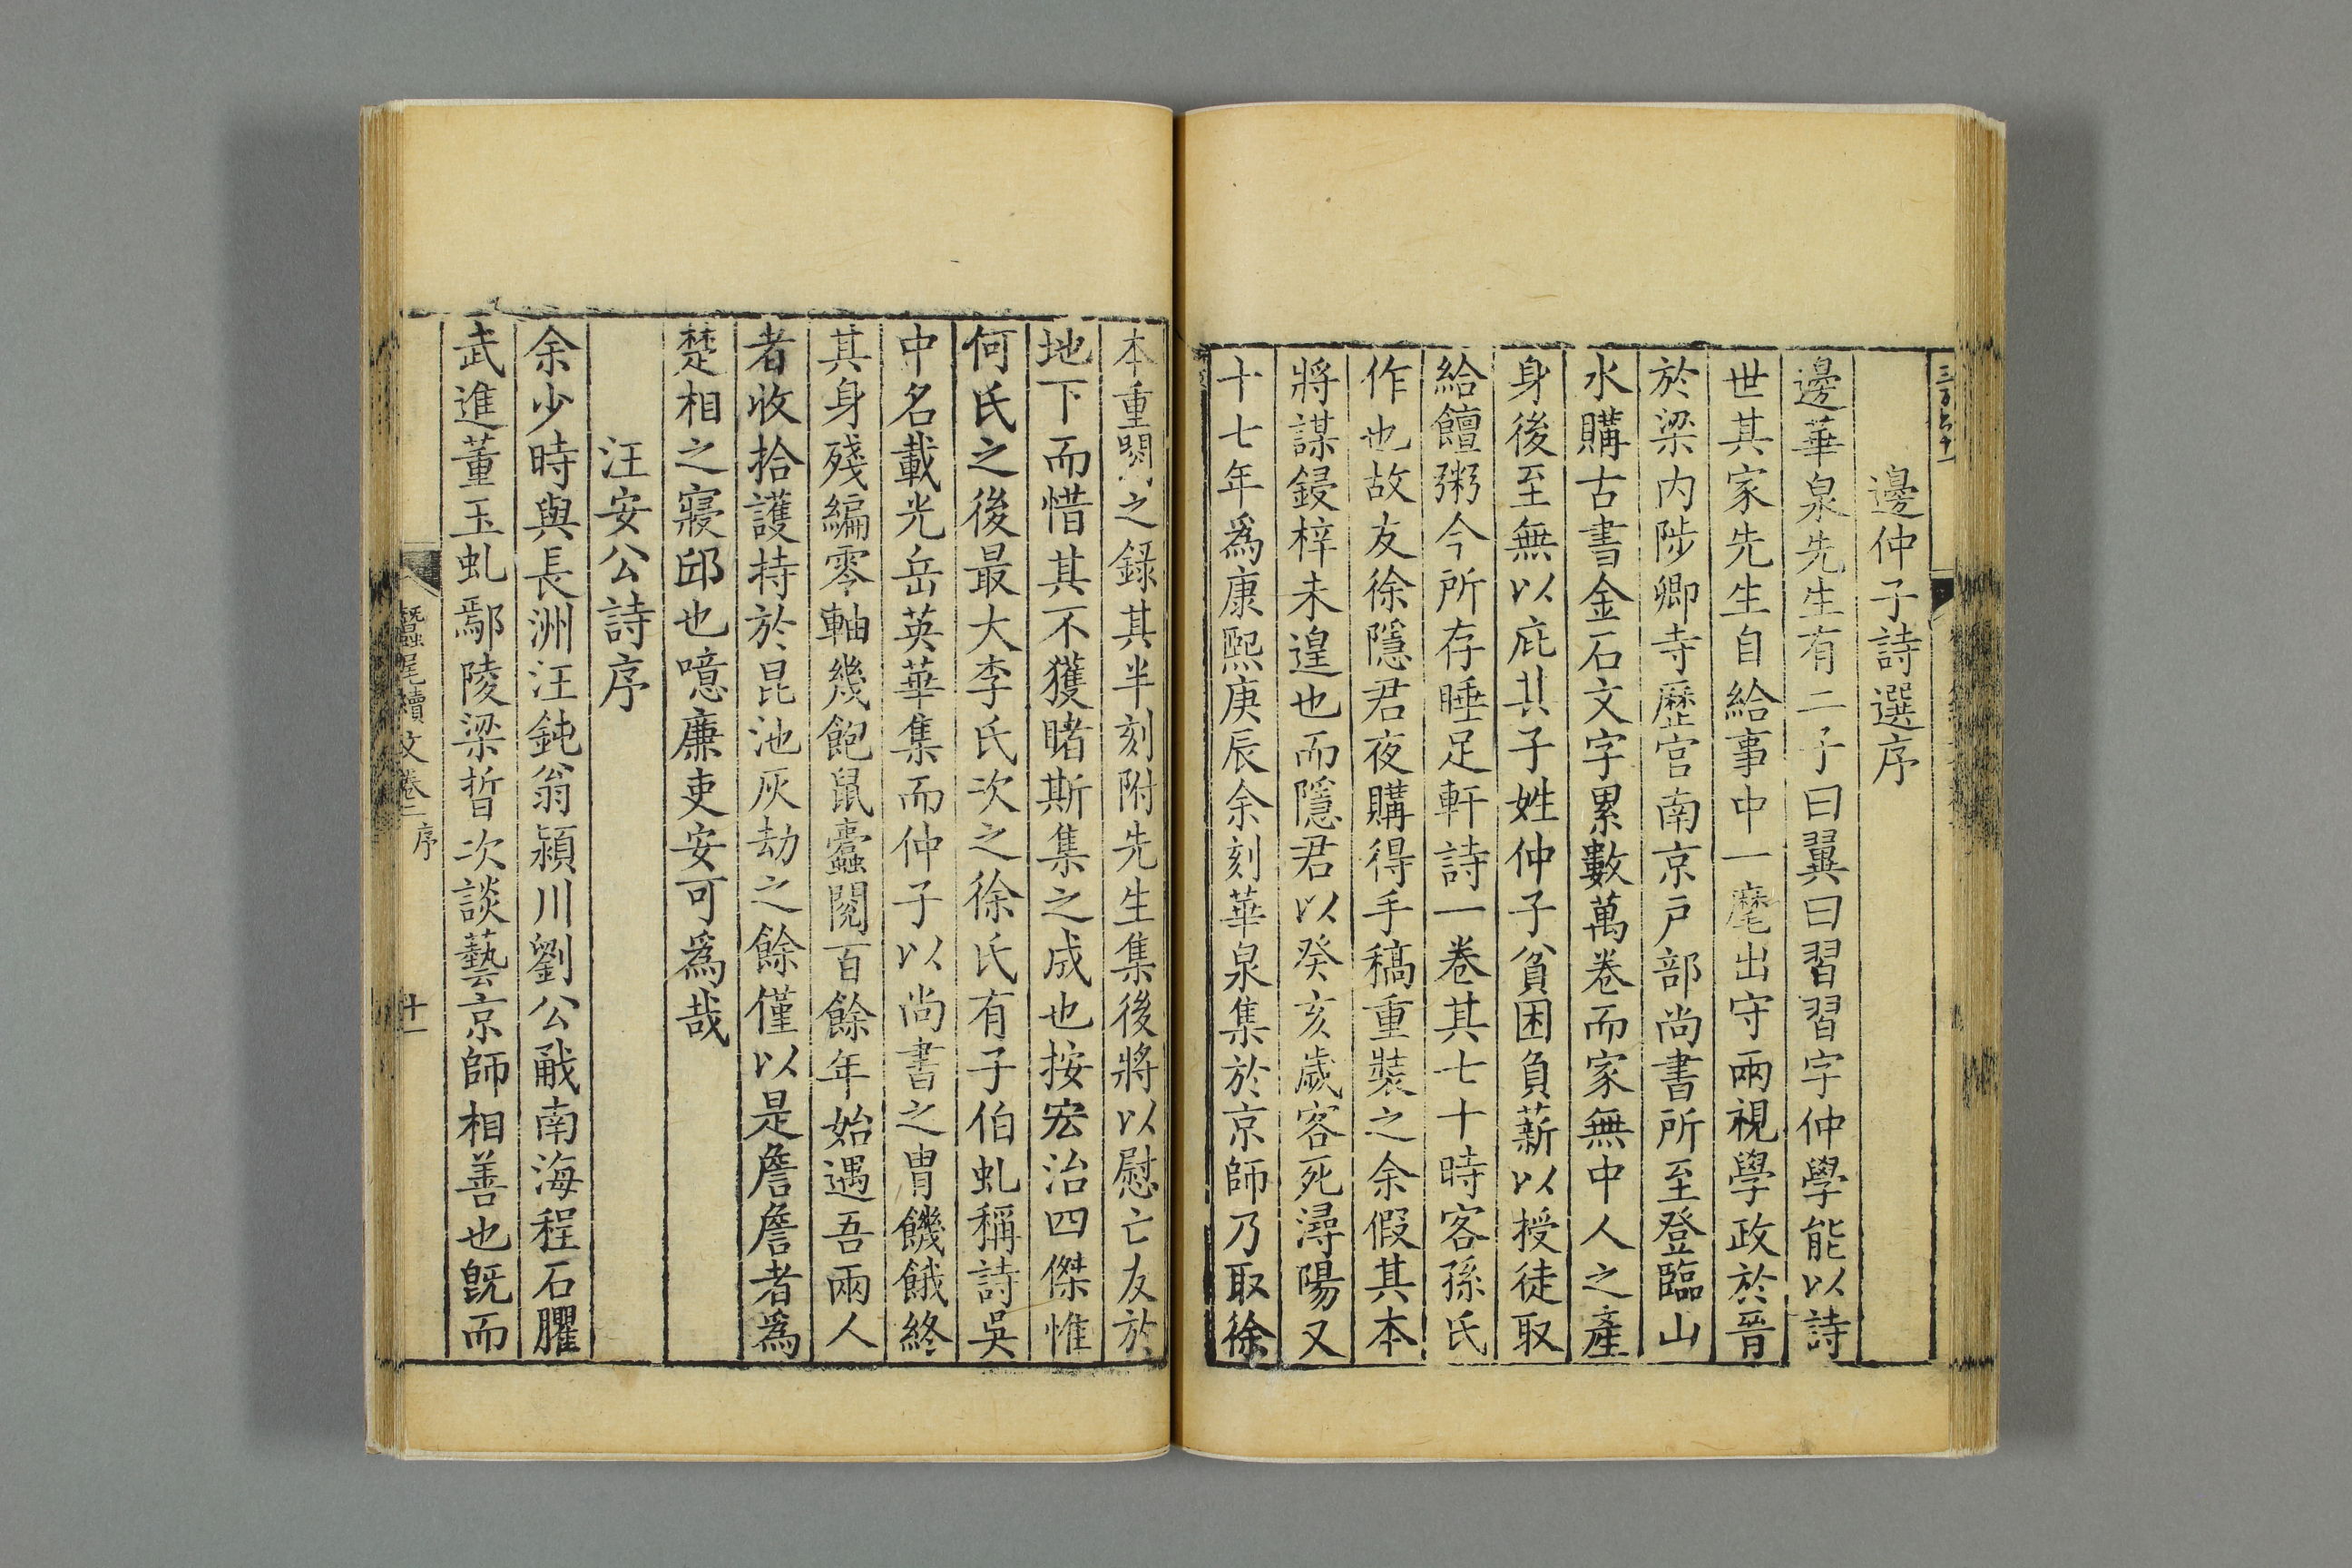 三百六十一
邊仲子詩選序
邊華泉先生有二子曰翼曰習習字仲學能以詩
世其家先生自給事中一麾出守兩視學政於晉
於梁内陟卿寺歷官南京戸部尚書所至登臨山
水購古書金石文字累數萬卷而家無中人之產
身後至無以庇其子姓仲子貧困負薪以授徒取
給饘粥今所存睡足軒詩一卷其七十時客孫氏
作也故友徐隱君夜購得手稿重裝之余假其本
將謀鋟梓未遑也而隱君以癸亥歲客死潯陽又
十七年爲康熙庚辰余刻華泉集於京師乃取徐
本重閱之錄其半刻附先生集後將以慰亡友於
地下而惜其不獲睹斯集之成也按宏治四傑惟
何氏之後最大李氏次之徐氏有子伯虬稱詩吳
中名載光岳英華集而仲子以尚書之胄饑餓終
其身殘編零軸幾飽鼠蠹閱百餘年始遇吾兩人
者收拾護持於昆池灰劫之餘僅以是詹詹者爲
楚相之寢邱也噫廉吏安可爲哉
汪安公詩序
余少時與長洲汪鈍翁潁川劉公㦷南海程石臞
武進董玉虬鄢陵梁晳次談藝京師相善也旣而
蠶尾續文卷二 序
十一